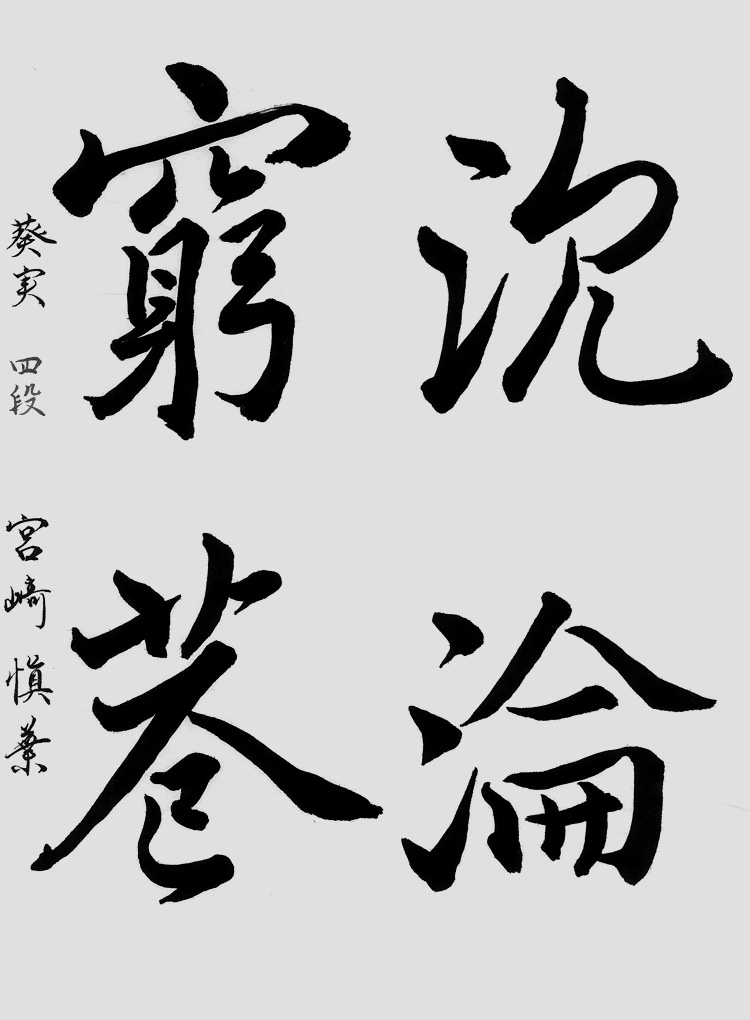 沈淪
窮巷
葵実 四段 宮崎 慎葉